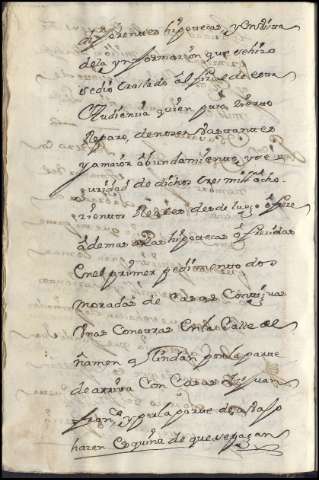 diferentes hipotecas, y en vista
de la ynformazion que se hizo
se dio traslado al fiscal de esta
Audiencia quien puso zierto
Reparo, de no ser bastantes
y a maior abundamiento, y se
guridad de dichos tres mil ocho
zientos Reales desde luego ofreze
ademas de las hipotecas ofrezidas
en el primer pedimento dos
moradas de Casas Contiguas
Unas con otras en la Calle de
y lindan por la parte
de arriva con Casas de Juan
y por la parte de abajo
hazen esquina de que se pagan